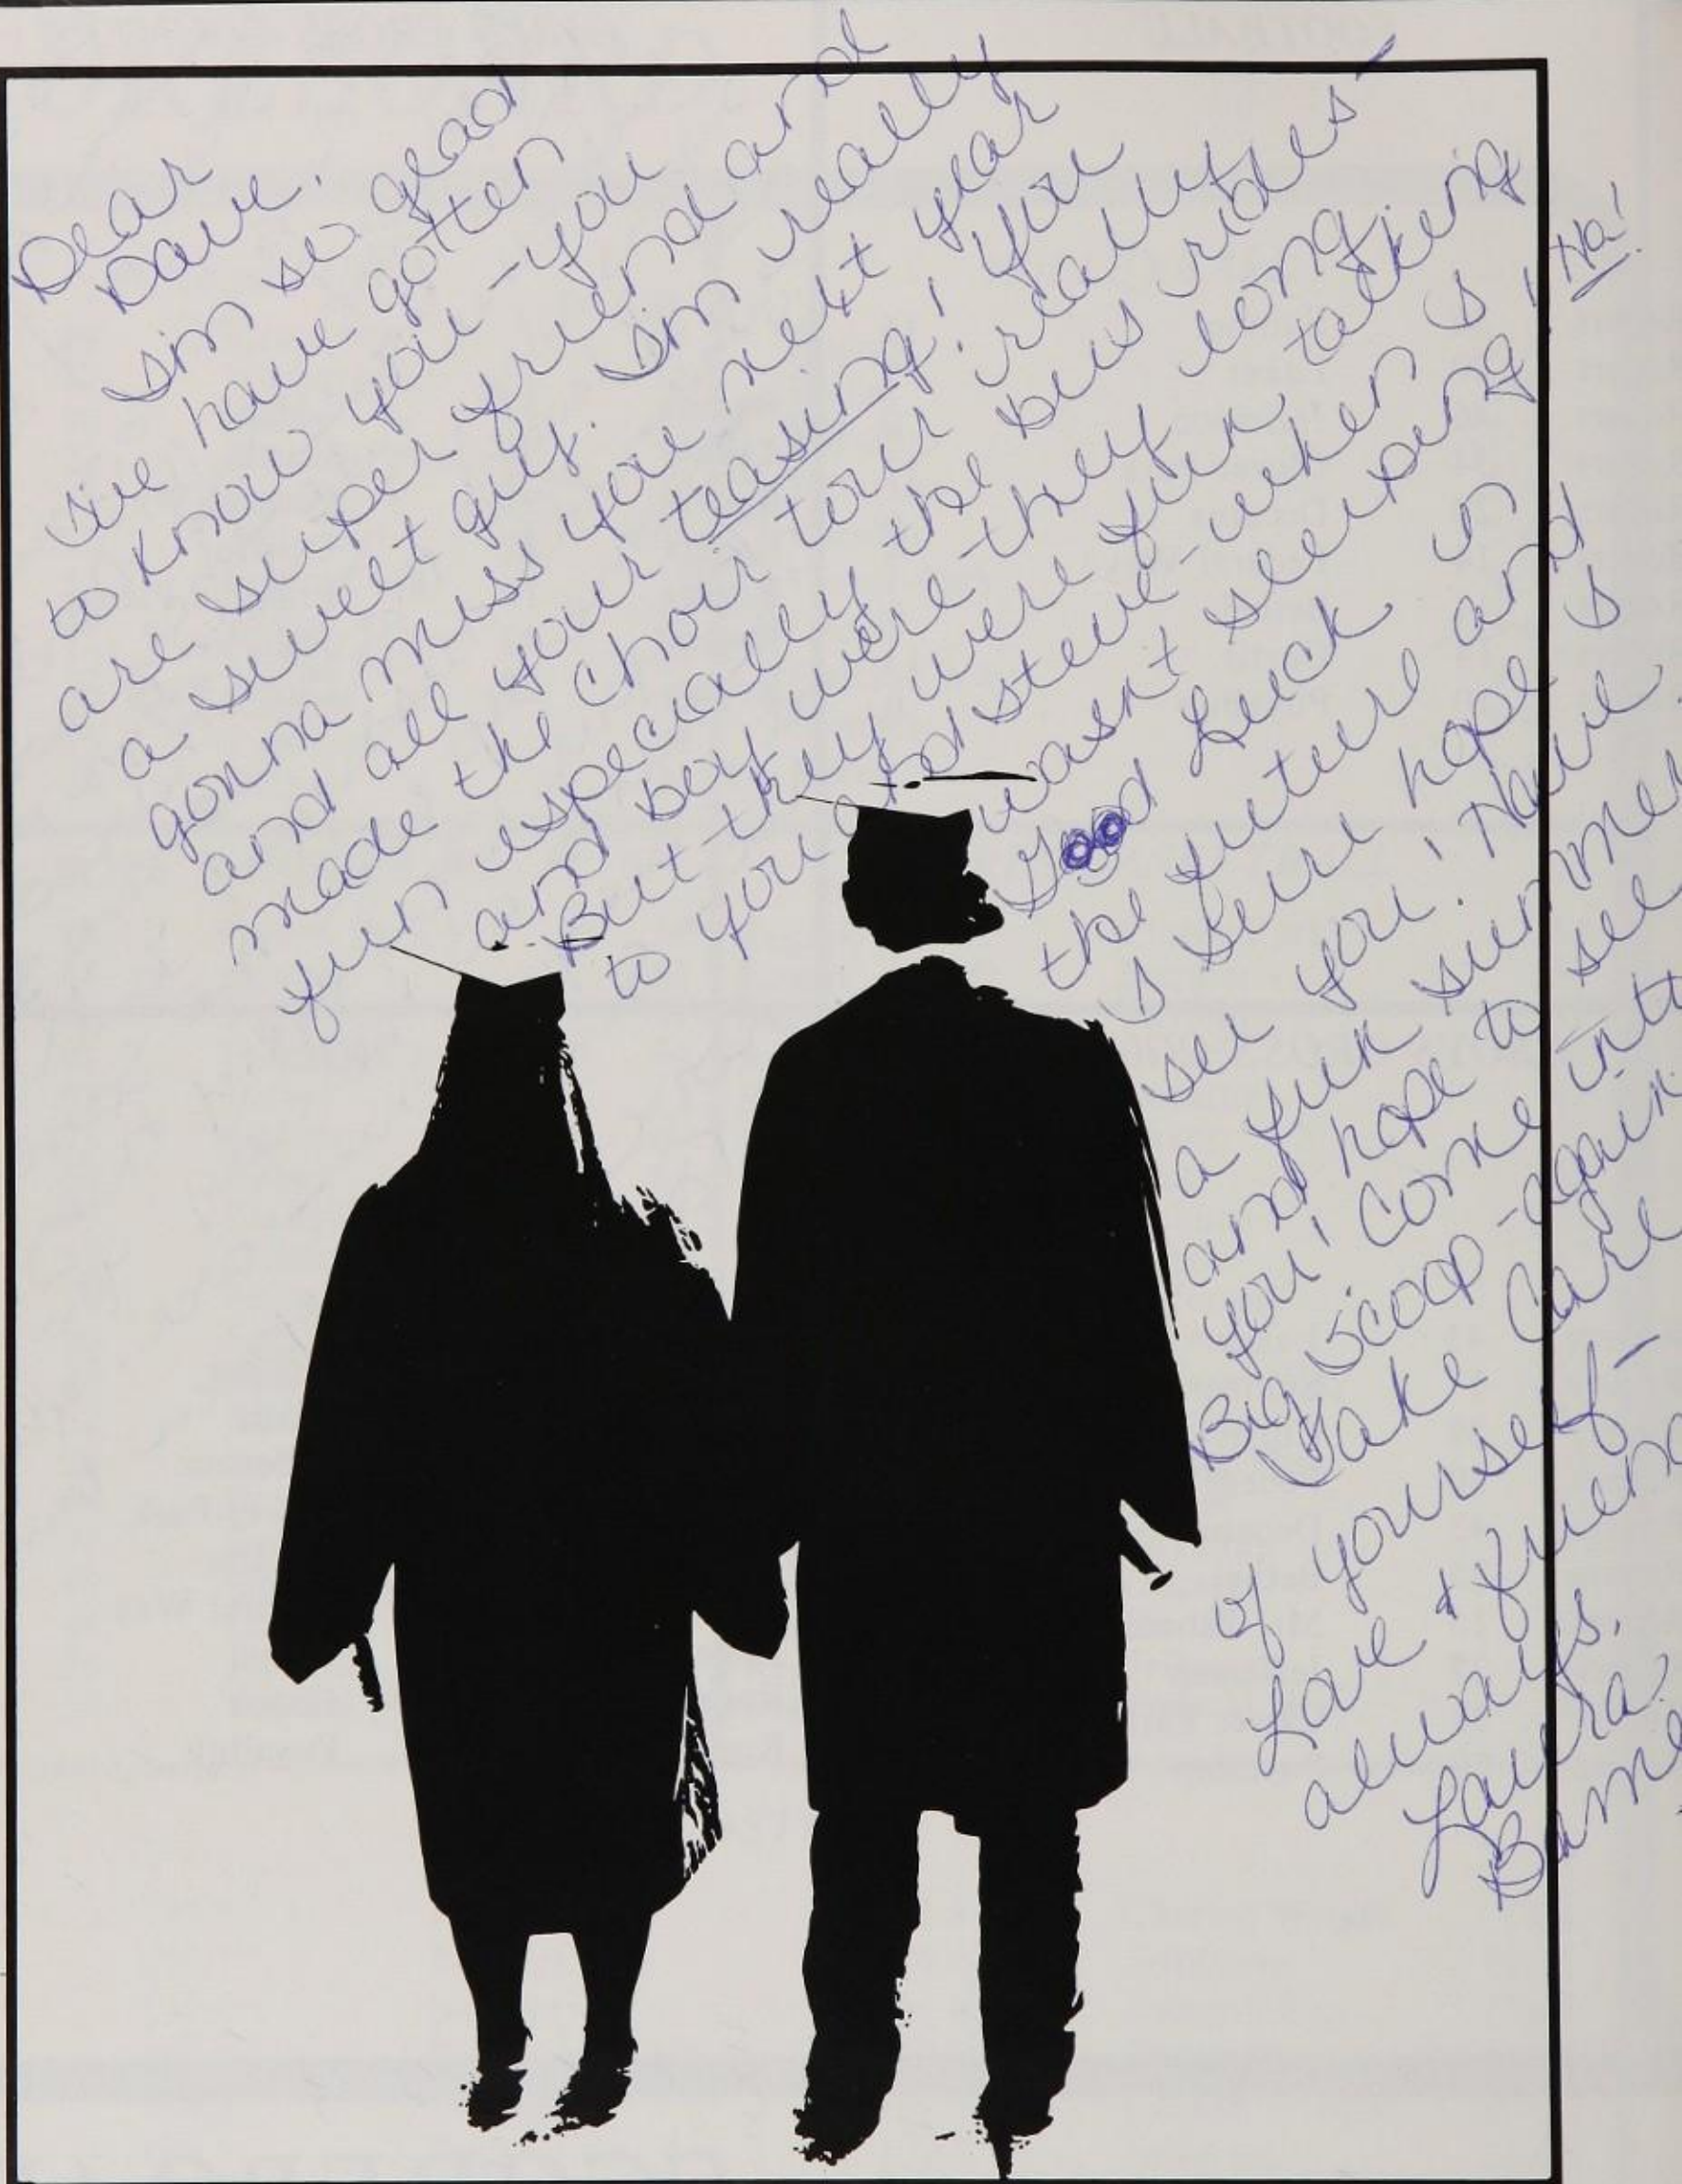 Dear
Dave,
I'm so glad
I've have gotten
to know you - you
are super friend and
a sweet guy. I'm really
gonna miss you next year
and all your teasing! You
made the choir tour really
fun especially the bus rides -
and boy were they long.
But they were fun talking
to you and Steve - when I
wasn't sleeping! Ha!
Good Luck in
the future and
I sure hope I
see you! Have
a fun summer
and hope to see
you! Come into
Big Scoop - again
Take Care
of yourself -
Love & Friend
always,
Laura